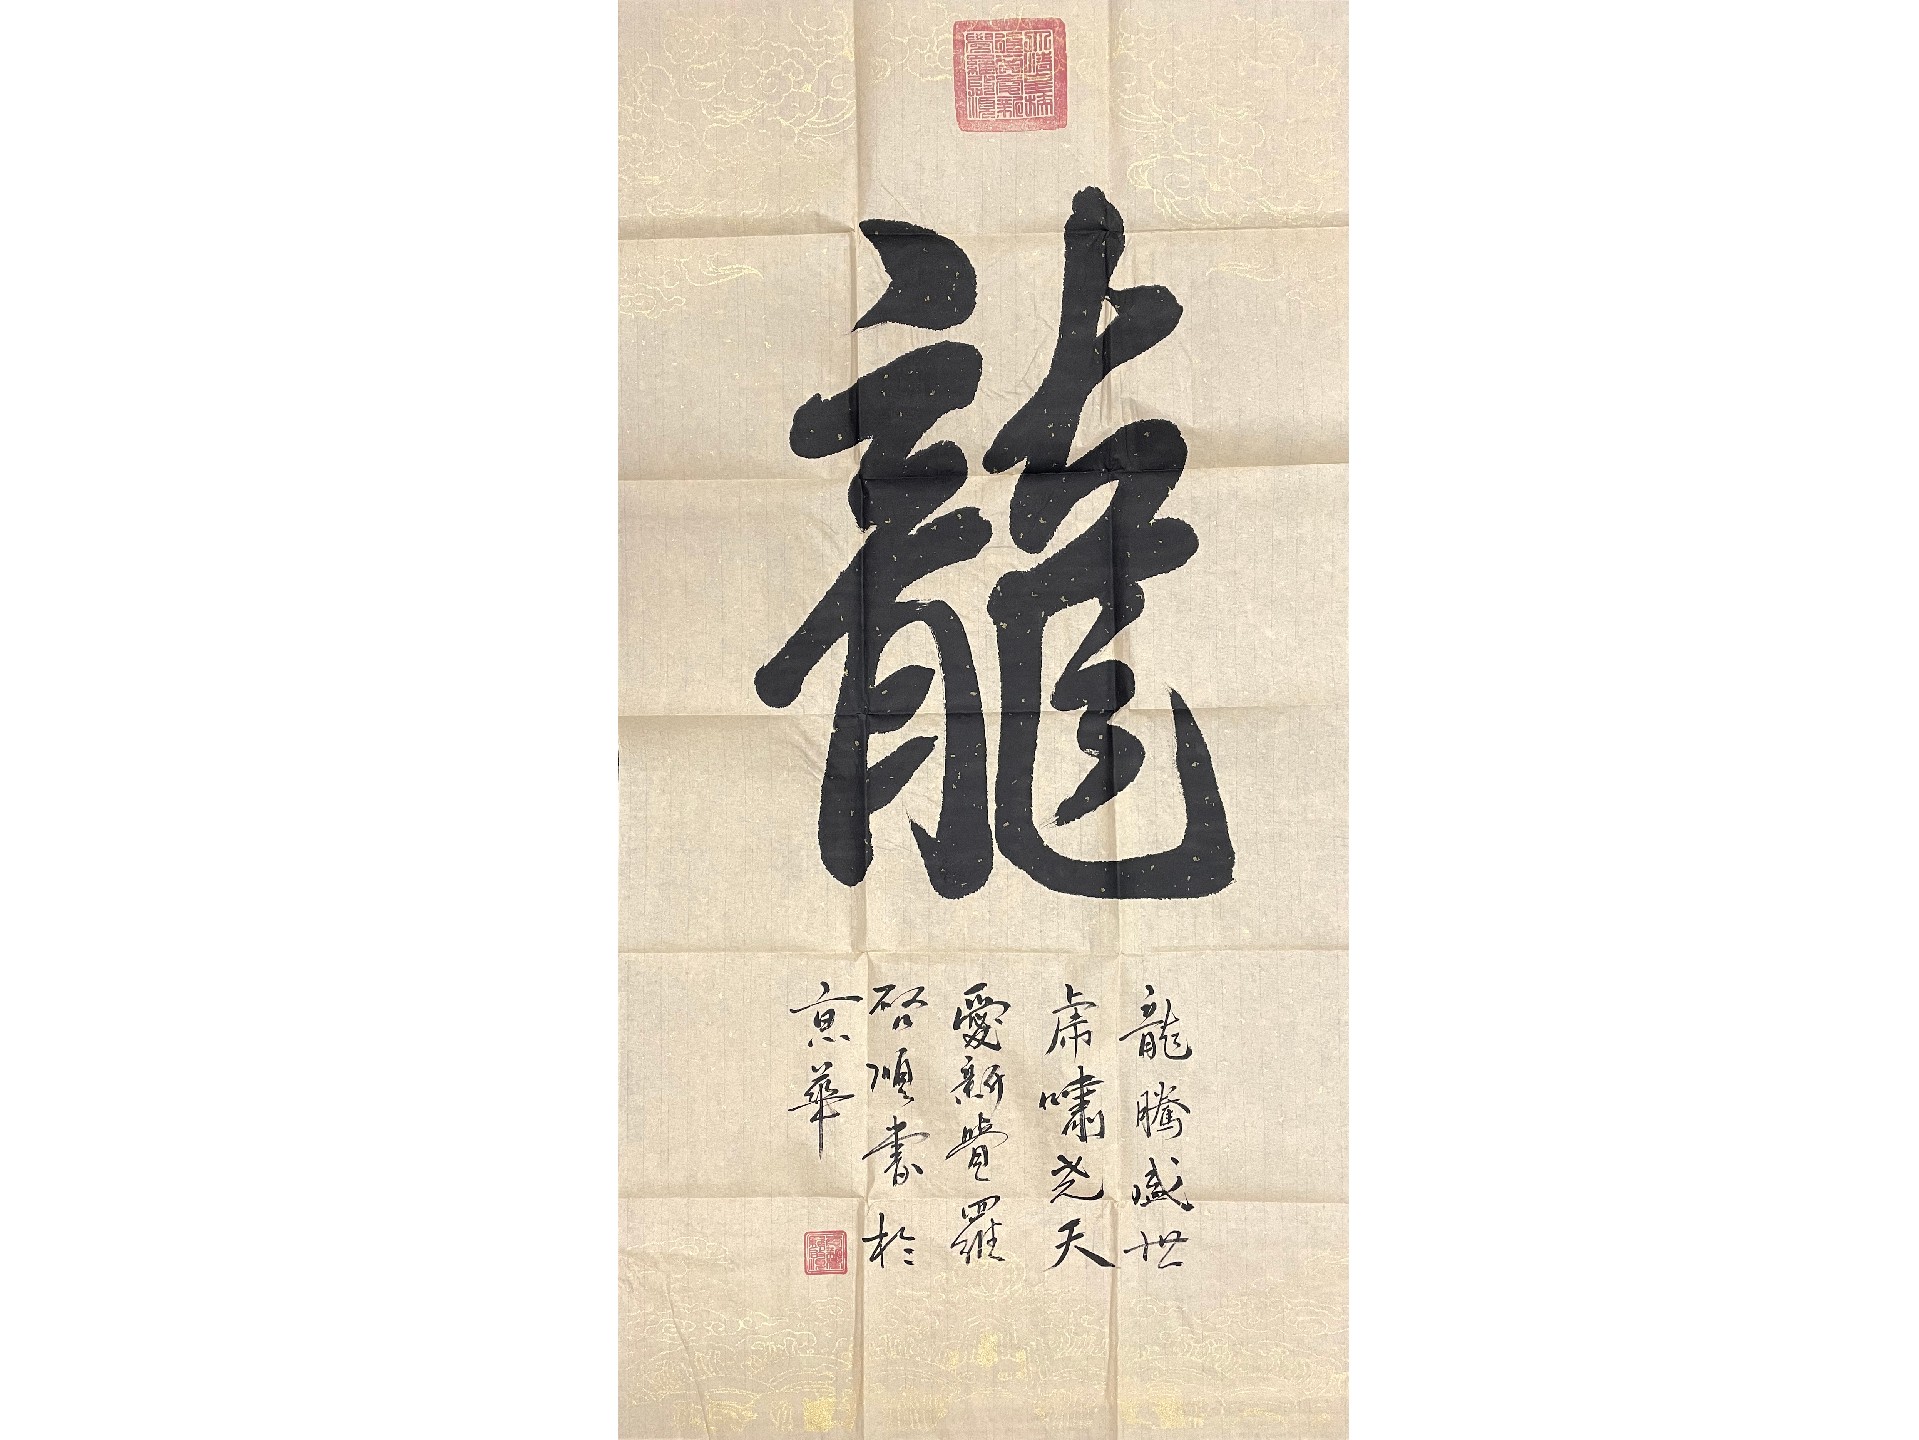 龍
龍騰盛世
虎嘯尧天
愛新覺羅
啓順書於
京華